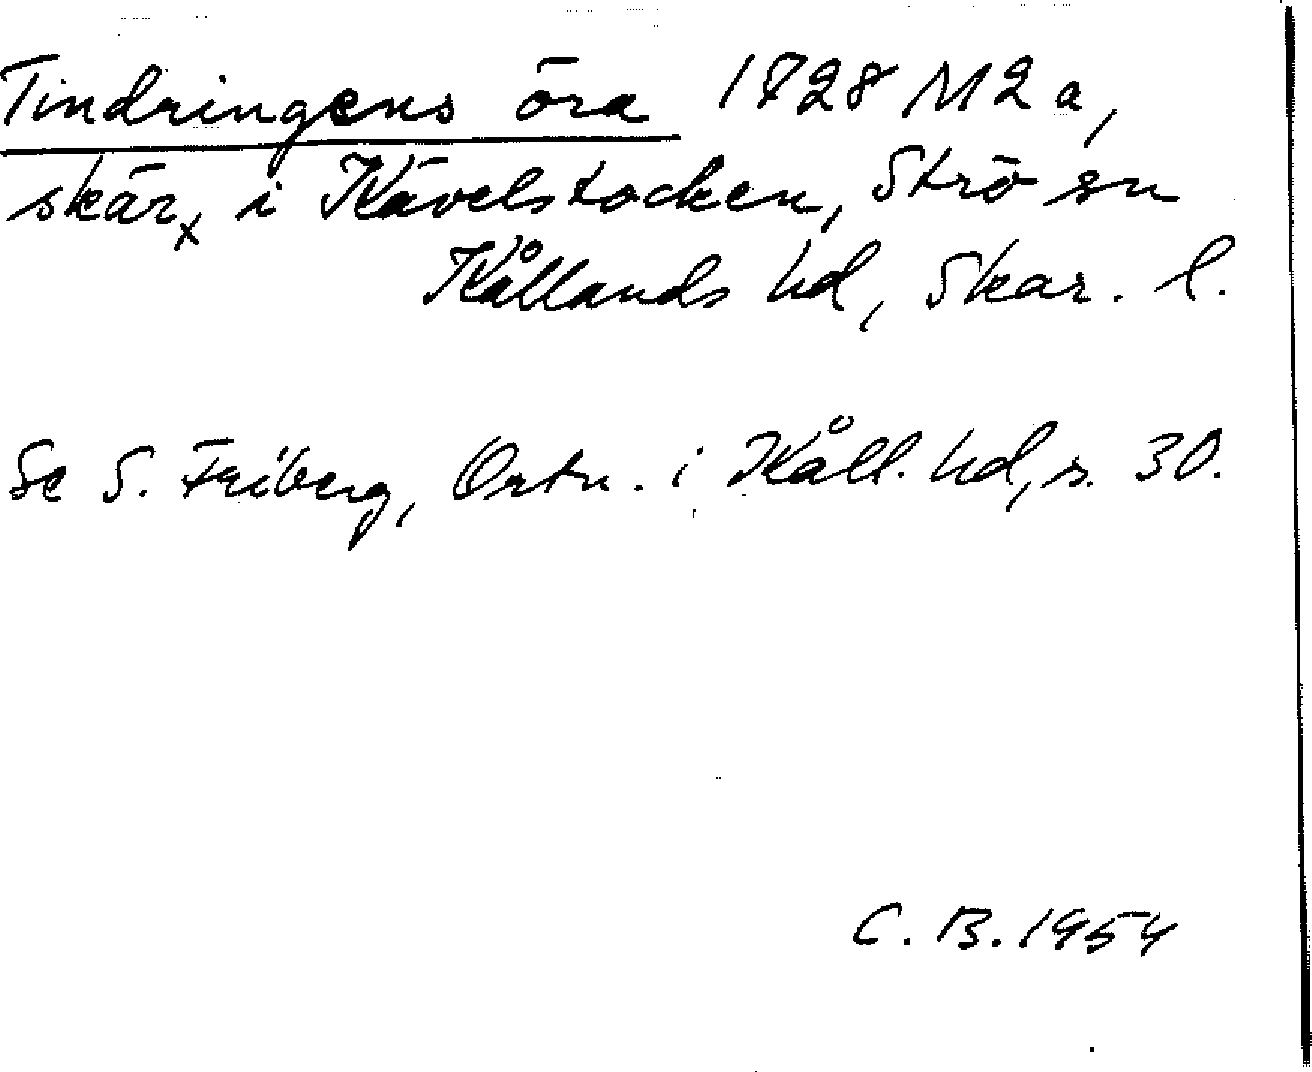 Tindringens öra 1728 M2a,
skär x i Kävelstocken, Strö sn
Kållands hd, Skar. l.
Se S. Friberg, Ortn. i Kåll. hd, s. 30.
C. B. 1954